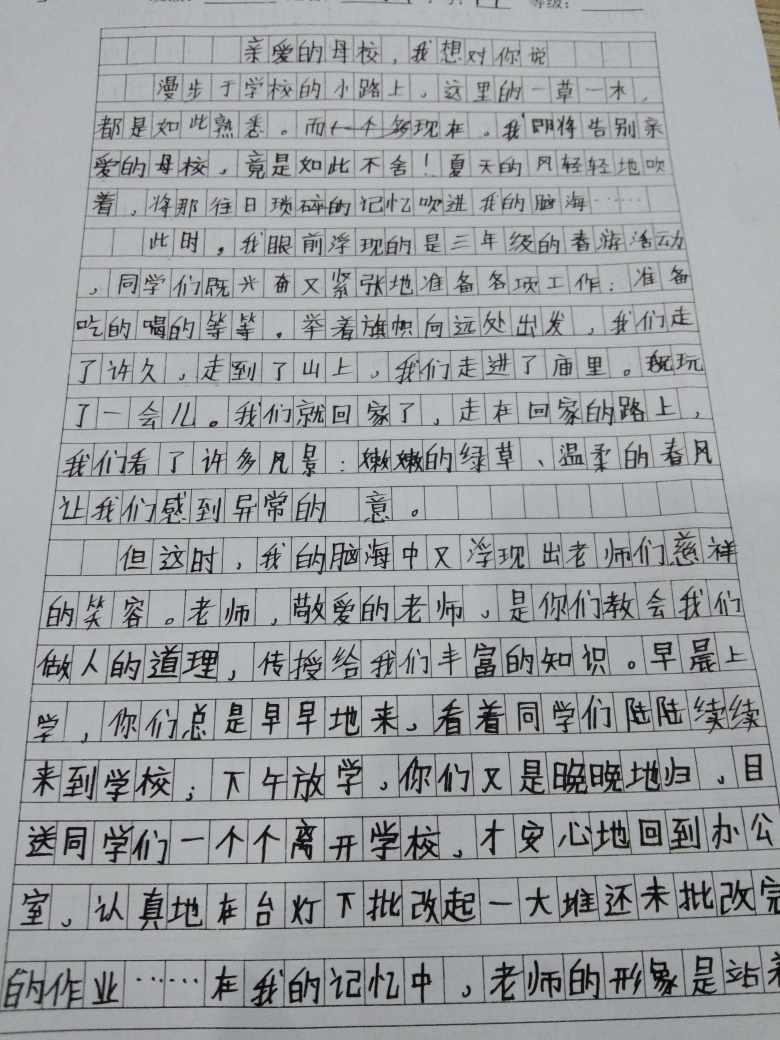 等级:
亲爱的母校,我想对你说
漫步于学校的小路上。这里的一草一木,
都是如此熟悉。而现在。我即将告别亲
爱的母校,竟是如此不舍!夏天的风轻轻地吹
着,将那往日琐碎的记忆吹进我的脑海……
此时,我眼前浮现的是三年级的春游活动
,同学们既兴奋又紧张地准备各项工作:准备
吃的喝的等等。举着旗帜向远处出发,我们走
了许久,走到了山上,我们走进了庙里。玩
了一会儿。我们就回家了,走在回家的路上,
我们看了许多风景:嫩嫩的绿草、温柔的春风
让我们感到异常的 意。
但这时,我的脑海中又浮现出老师们慈祥
的笑容。老师,敬爱的老师,是你们教会我们
做人的道理,传授给我们丰富的知识。早晨上
学,你们总是早早地来,看着同学们陆陆续续
来到学校;下午放学,你们又是晚晚地归,目
送同学们一个个离开学校,才安心地回到办公
室,认真地在台灯下批改起一大堆还未批改完
的作业……在我的记忆中,老师的形象是站着